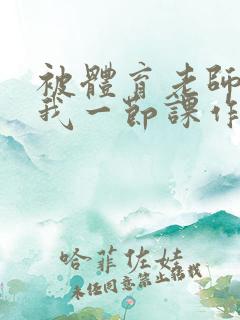 被體育老師
我一節課作
哈菲佐娃
未经同意禁止转载